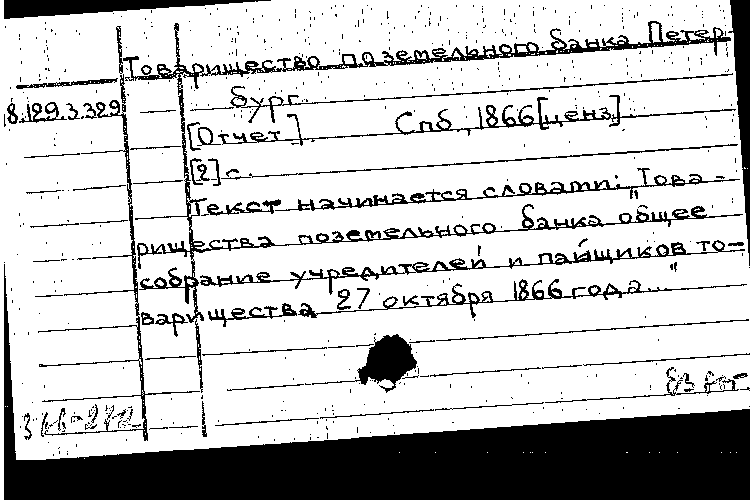 Товарищество поземельного банка. Петер-
8.129.3.329
бург.
[Отчет]. Спб, 1866 [ценз].
[2] с.
Текст начинается словами: „Това-
рищества поземельного банка общее
собрание учредителей и пайщиков то-
варищества 27 октября 1866 года..."